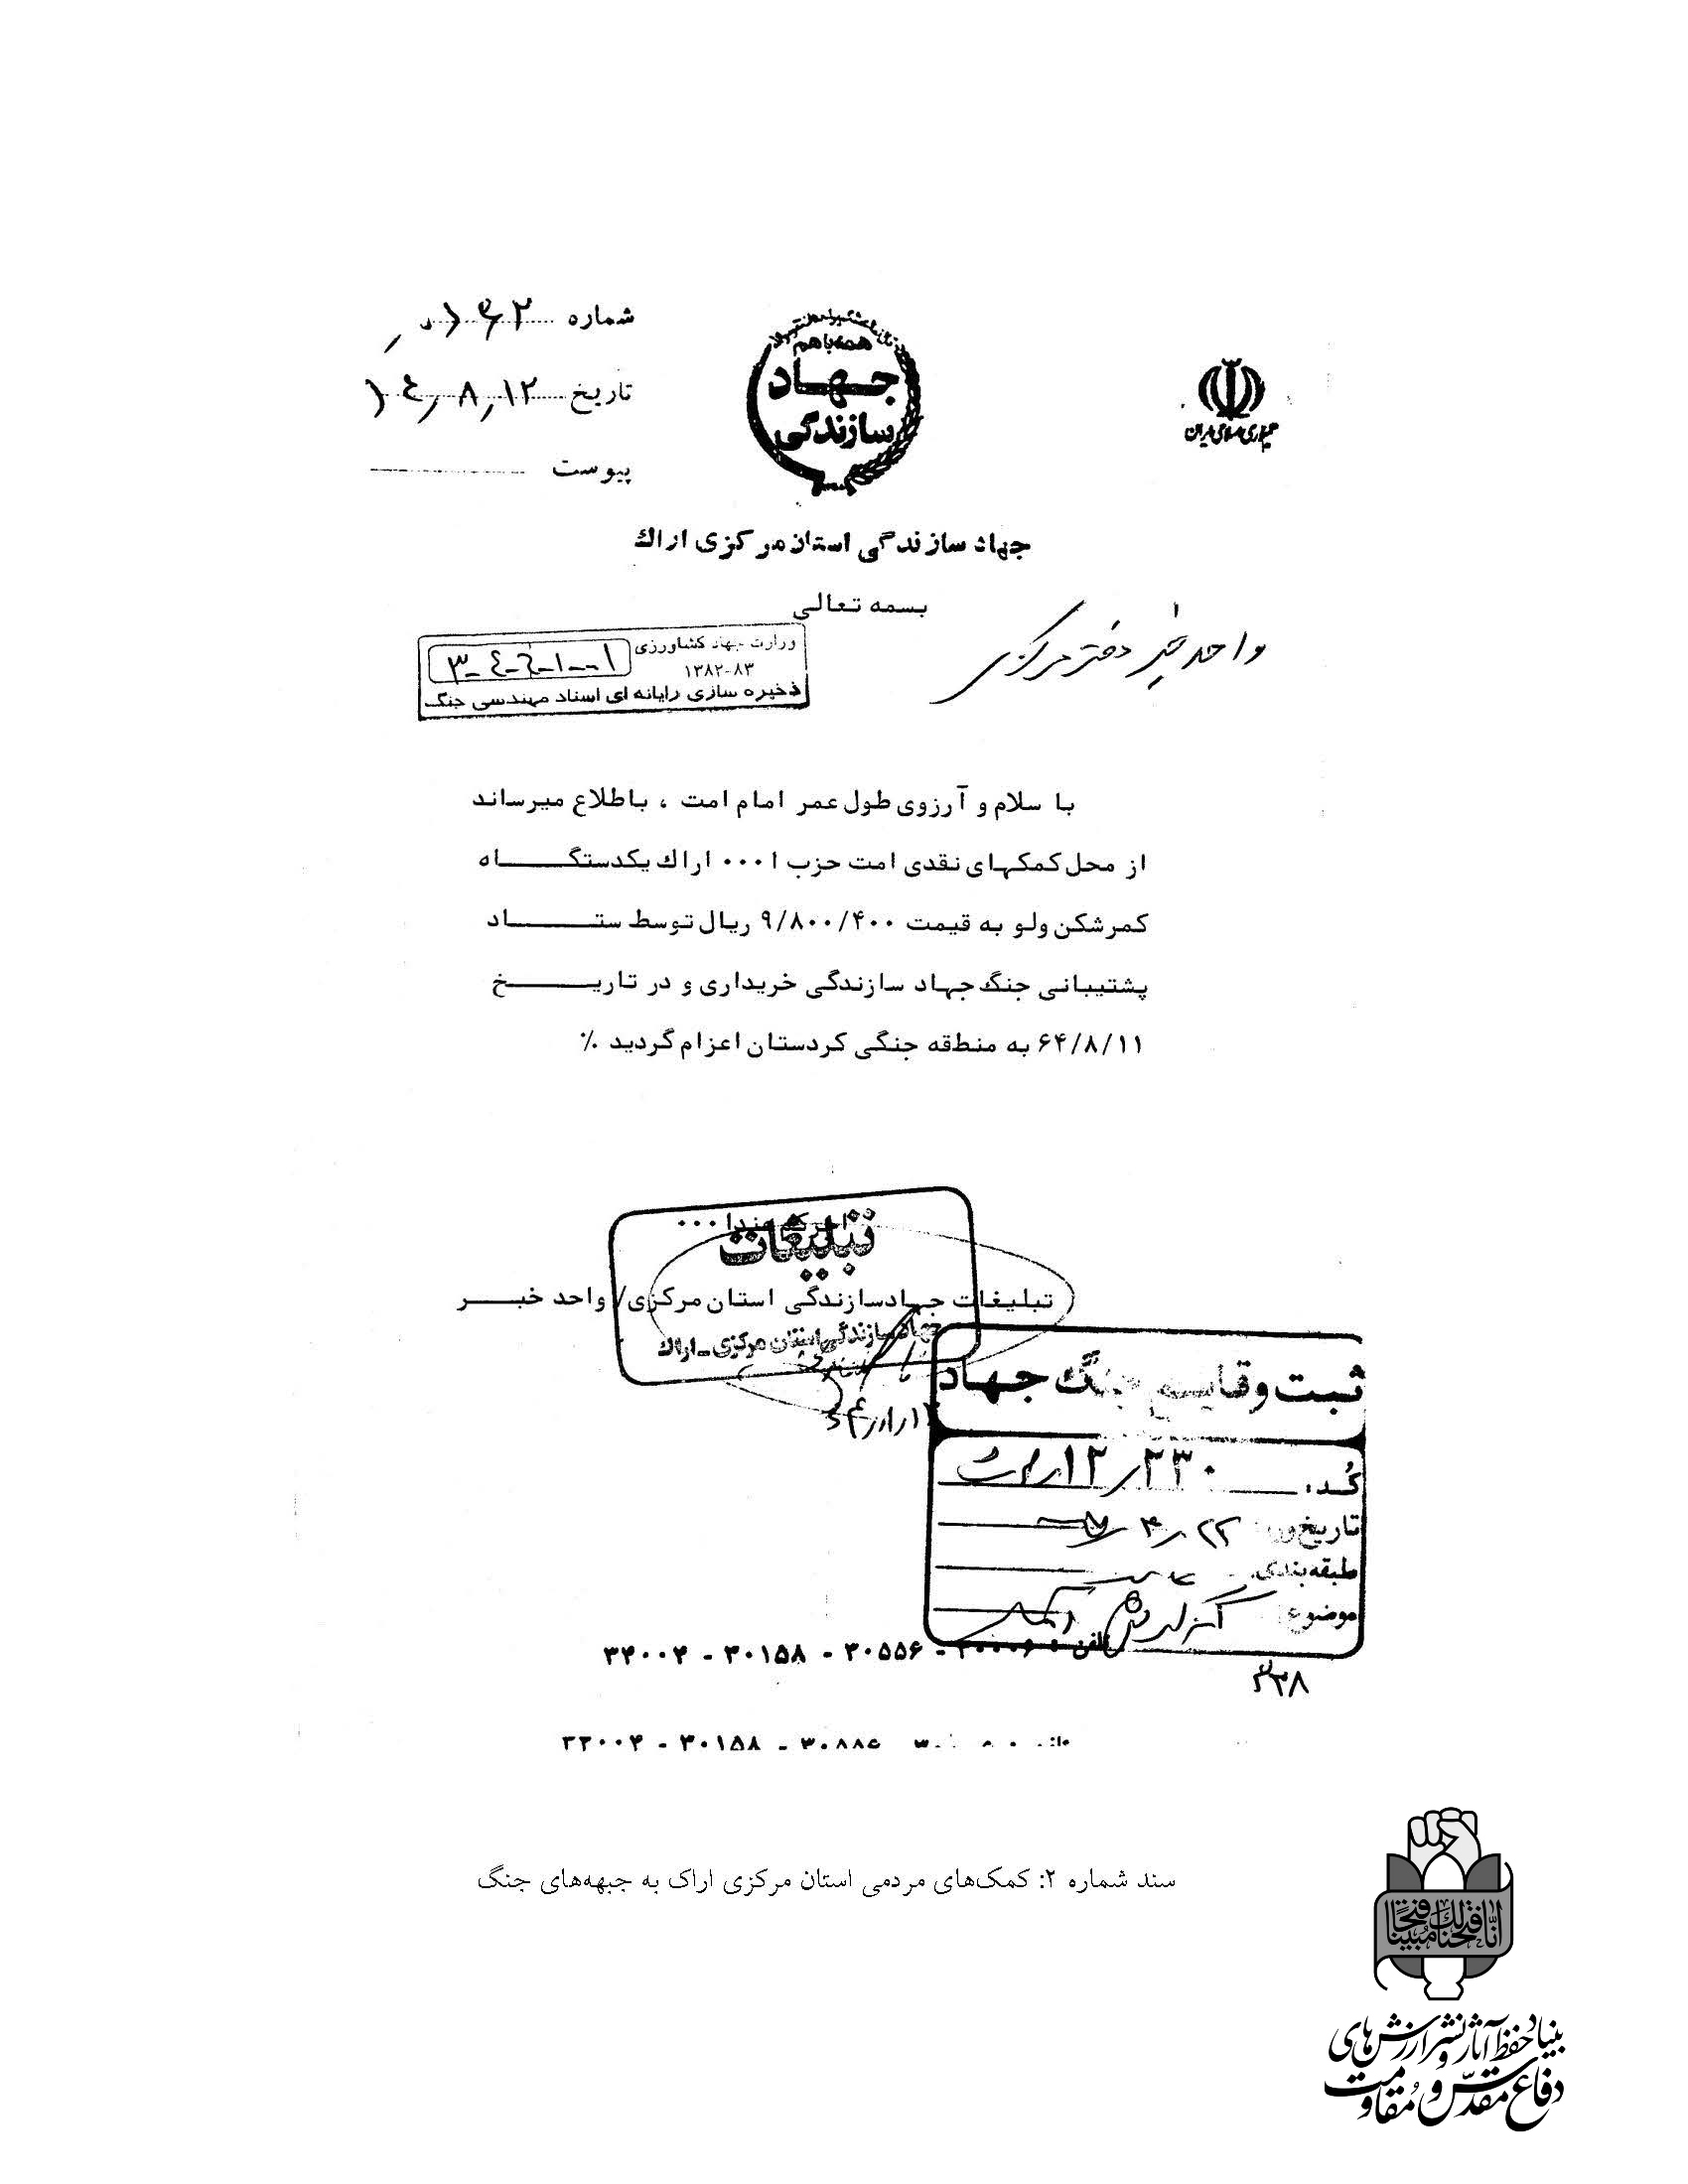 جمهوری اسلامی ایران
همه با هم
جهاد
سازندگی
شماره
تاریخ ۱۲ر۸ر٤
پیوست
جهاد سازندگی استان مرکزی اراك
بسمه تعالی
واحد خبر دفتر مرکزی
وزارت جهاد کشاورزی
۱۳۸۲-۸۳
ذخیره سازی رایانه ای اسناد مهندسی جنگ
با سلام و آرزوی طول عمر امام امت ، باطلاع میرساند
از محل کمکهای نقدی امت حزب ا ۰۰۰ اراك یکدستگـــاه
کمرشکن ولو به قیمت ۹/۸۰۰/۴۰۰ ریال توسط ستـــاد
پشتیبانی جنگ جهاد سازندگی خریداری و در تاریـــخ
۶۴/۸/۱۱ به منطقه جنگی کردستان اعزام گردید ٪
تبلیغات
تبلیغات جهادسازندگی استان مرکزی/ واحد خبـــر
جهاد سازندگی استان مرکزی-اراك
ثبت وقایع جنگ جهاد
کُـد:
تاریخ
طبقه‌بندی
موضوع
تلفن : ۳۰۰۰۶ - ۳۰۵۵۶ - ۳۰۱۵۸ - ۳۴۰۰۴
۳۰۱۵۸
سند شماره ۲: کمک‌های مردمی استان مرکزی اراک به جبهه‌های جنگ
إنّا فتحنا لك فتحًا مُبینا
بنیاد حفظ آثار و نشر ارزش‌های
دفاع مقدّس و مُقاومت